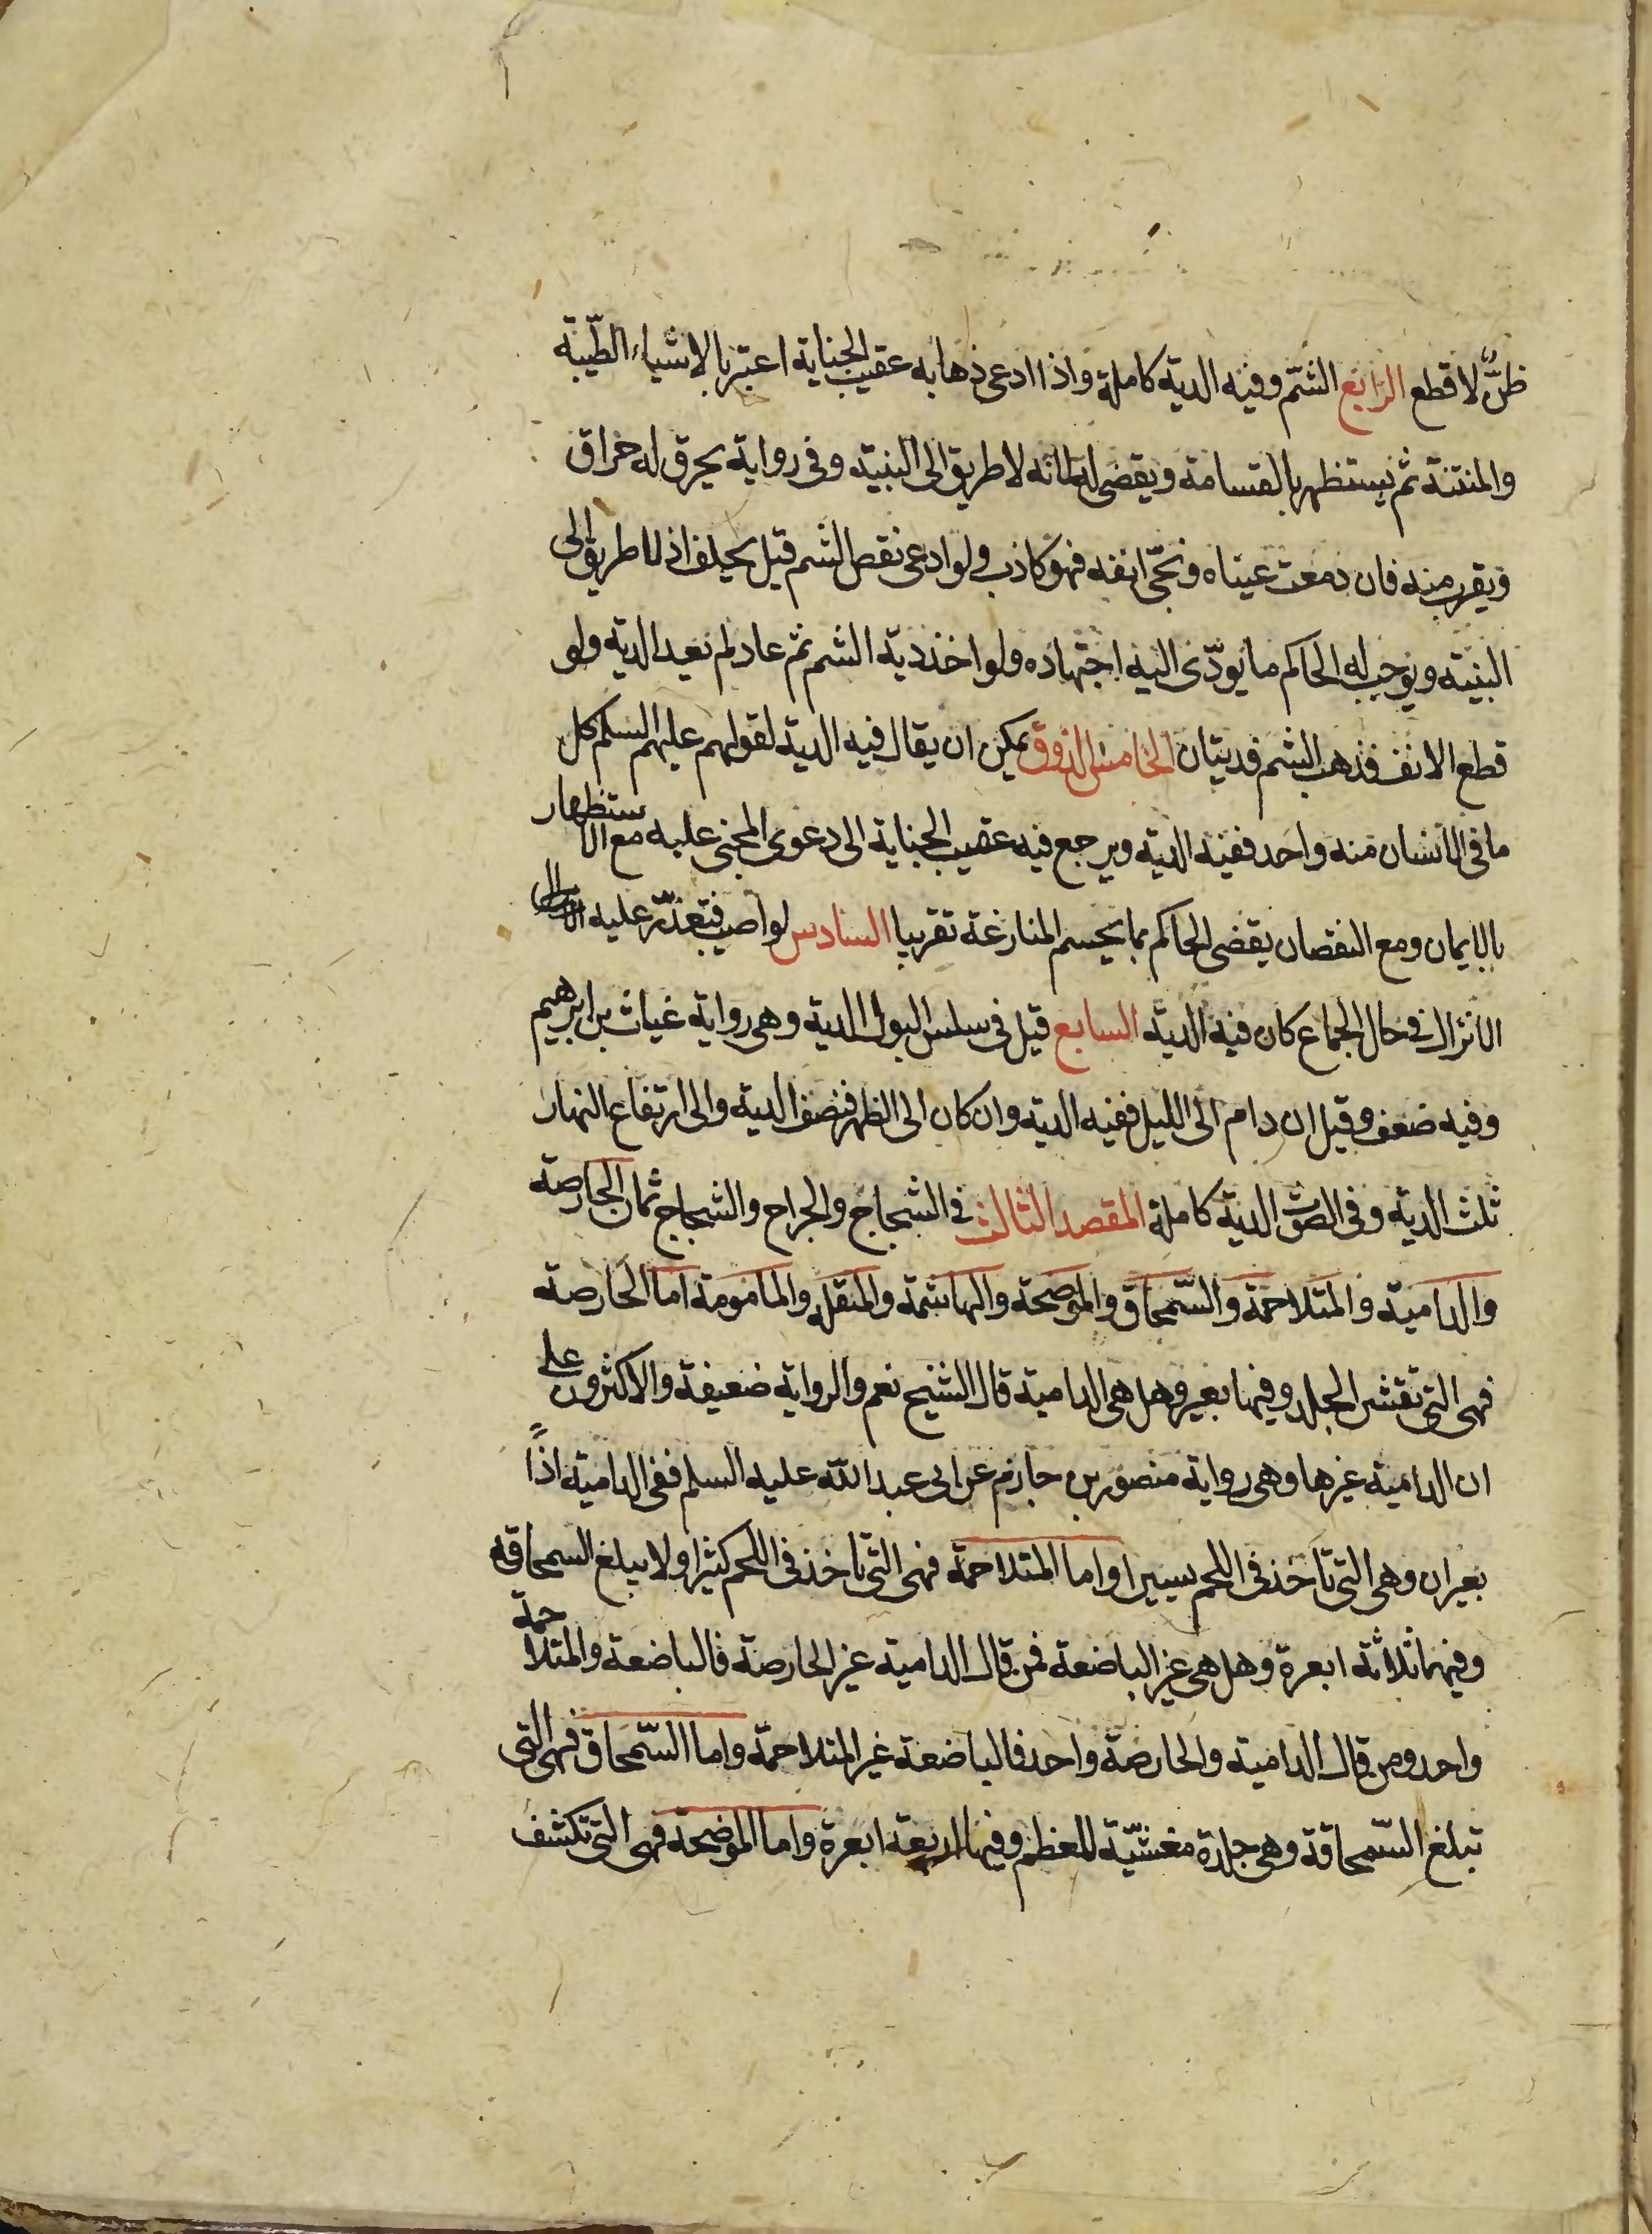 ظنٌّ لا قطع الرابع الشمّ وفيه الدية كاملة واذا ادعى ذهابه عقيب الجناية اعتبر بالاشياء الطيّبة
والمنتنة ثم يستظهر بالقسامة ويقضى له لانه لا طريق الى البينة وفى رواية يحرق له حراق
ويقرب منه فان دمعت عيناه ونحّى انفه فهو كاذب ولو ادعى نقص الشم قيل يحلف اذ لا طريق الى
البينة ويوجب له الحاكم ما يودّى اليه اجتهاده ولو اخذ دية الشم ثم عاد لم تعد الدية ولو
قطع الانف فذهب الشم فديتان الخامس الذوق يمكن ان يقال فيه الدية لقولهم عليهم السلم كل
ما فى الانسان منه واحد ففيه الدية ويرجع فيه عقيب الجناية الى دعوى المجنى عليه مع الاستظهار
بالايمان ومع النقصان يقضى الحاكم بما يحسم المنازعة تقريبا السادس لو اصيب فتعذّر عليه
الانزال فى حال الجماع كان فيه الدية السابع قيل فى سلس البول الدية وهى رواية غياث بن ابرهيم
وفيه ضعف وقيل ان دام الى الليل ففيه الدية وان كان الى الظهر فنصف الدية والى ارتفاع النهار
ثلث الدية وفى الصوت الدية كاملة المقصد الثالث فى الشجاج والجراح والشجاج ثمان الحارصة
والدامية والمتلاحمة والسّمحاق والموضحة والهاشمة والمنقلة والمامومة اما الحارصة
فهى التى تقشر الجلد وفيها بعير وهل هى الدامية قال الشيخ نعم والرواية ضعيفة والاكثرون على
ان الدامية غيرها وهى رواية منصور بن حازم عن ابى عبد الله عليه السلم ففى الدامية اذاً
بعيران وهى التى تاخذ فى اللحم يسيرا واما المتلاحمة فهى التى تاخذ فى اللحم كثيرا ولا يبلغ السمحاقه
وفيها ثلاثة ابعرة وهل هى غير الباضعة فمن قال الدامية غير الحارصة فالباضعة والمتلاحمة
واحد ومن قال الدامية والحارصة واحد فالباضعة غير المتلاحمة واما السّمحاق فهى التى
تبلغ السّمحاقة وهى جلدة مغشيّة للعظم وفيها اربعة ابعرة واما الموضحة فهى التى تكشف